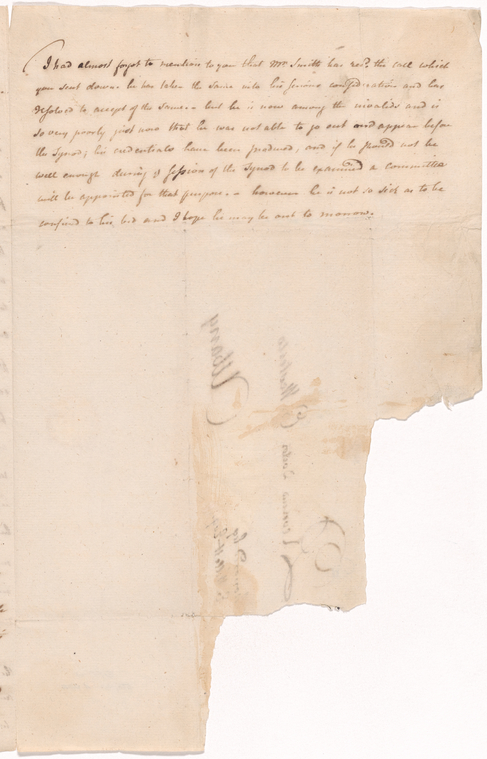 I had almost forgot to mention to you that Mr Smith has recd. the call which
you sent down. he has taken the same into his serious consideration and has
resolved to accept of the same – but he is now among the invalids and is
so very poorly just now that he was not able to go out and appear before
the Synod; his credentials have been produced, and if he should not be
well enough during ye session of the Synod to be examined a committee
will be appointed for that purpose – however he is not so sick as to be
confind to his bed and I hope he may be out to morrow.
Albany